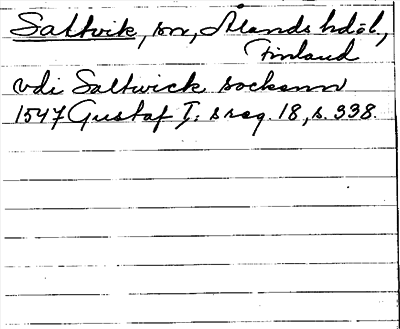 Saltvik, sn, Ålands hdöl,
Finland
vdi Saltwick sockenn
1547 Gustaf I:s reg. 18, s. 338.